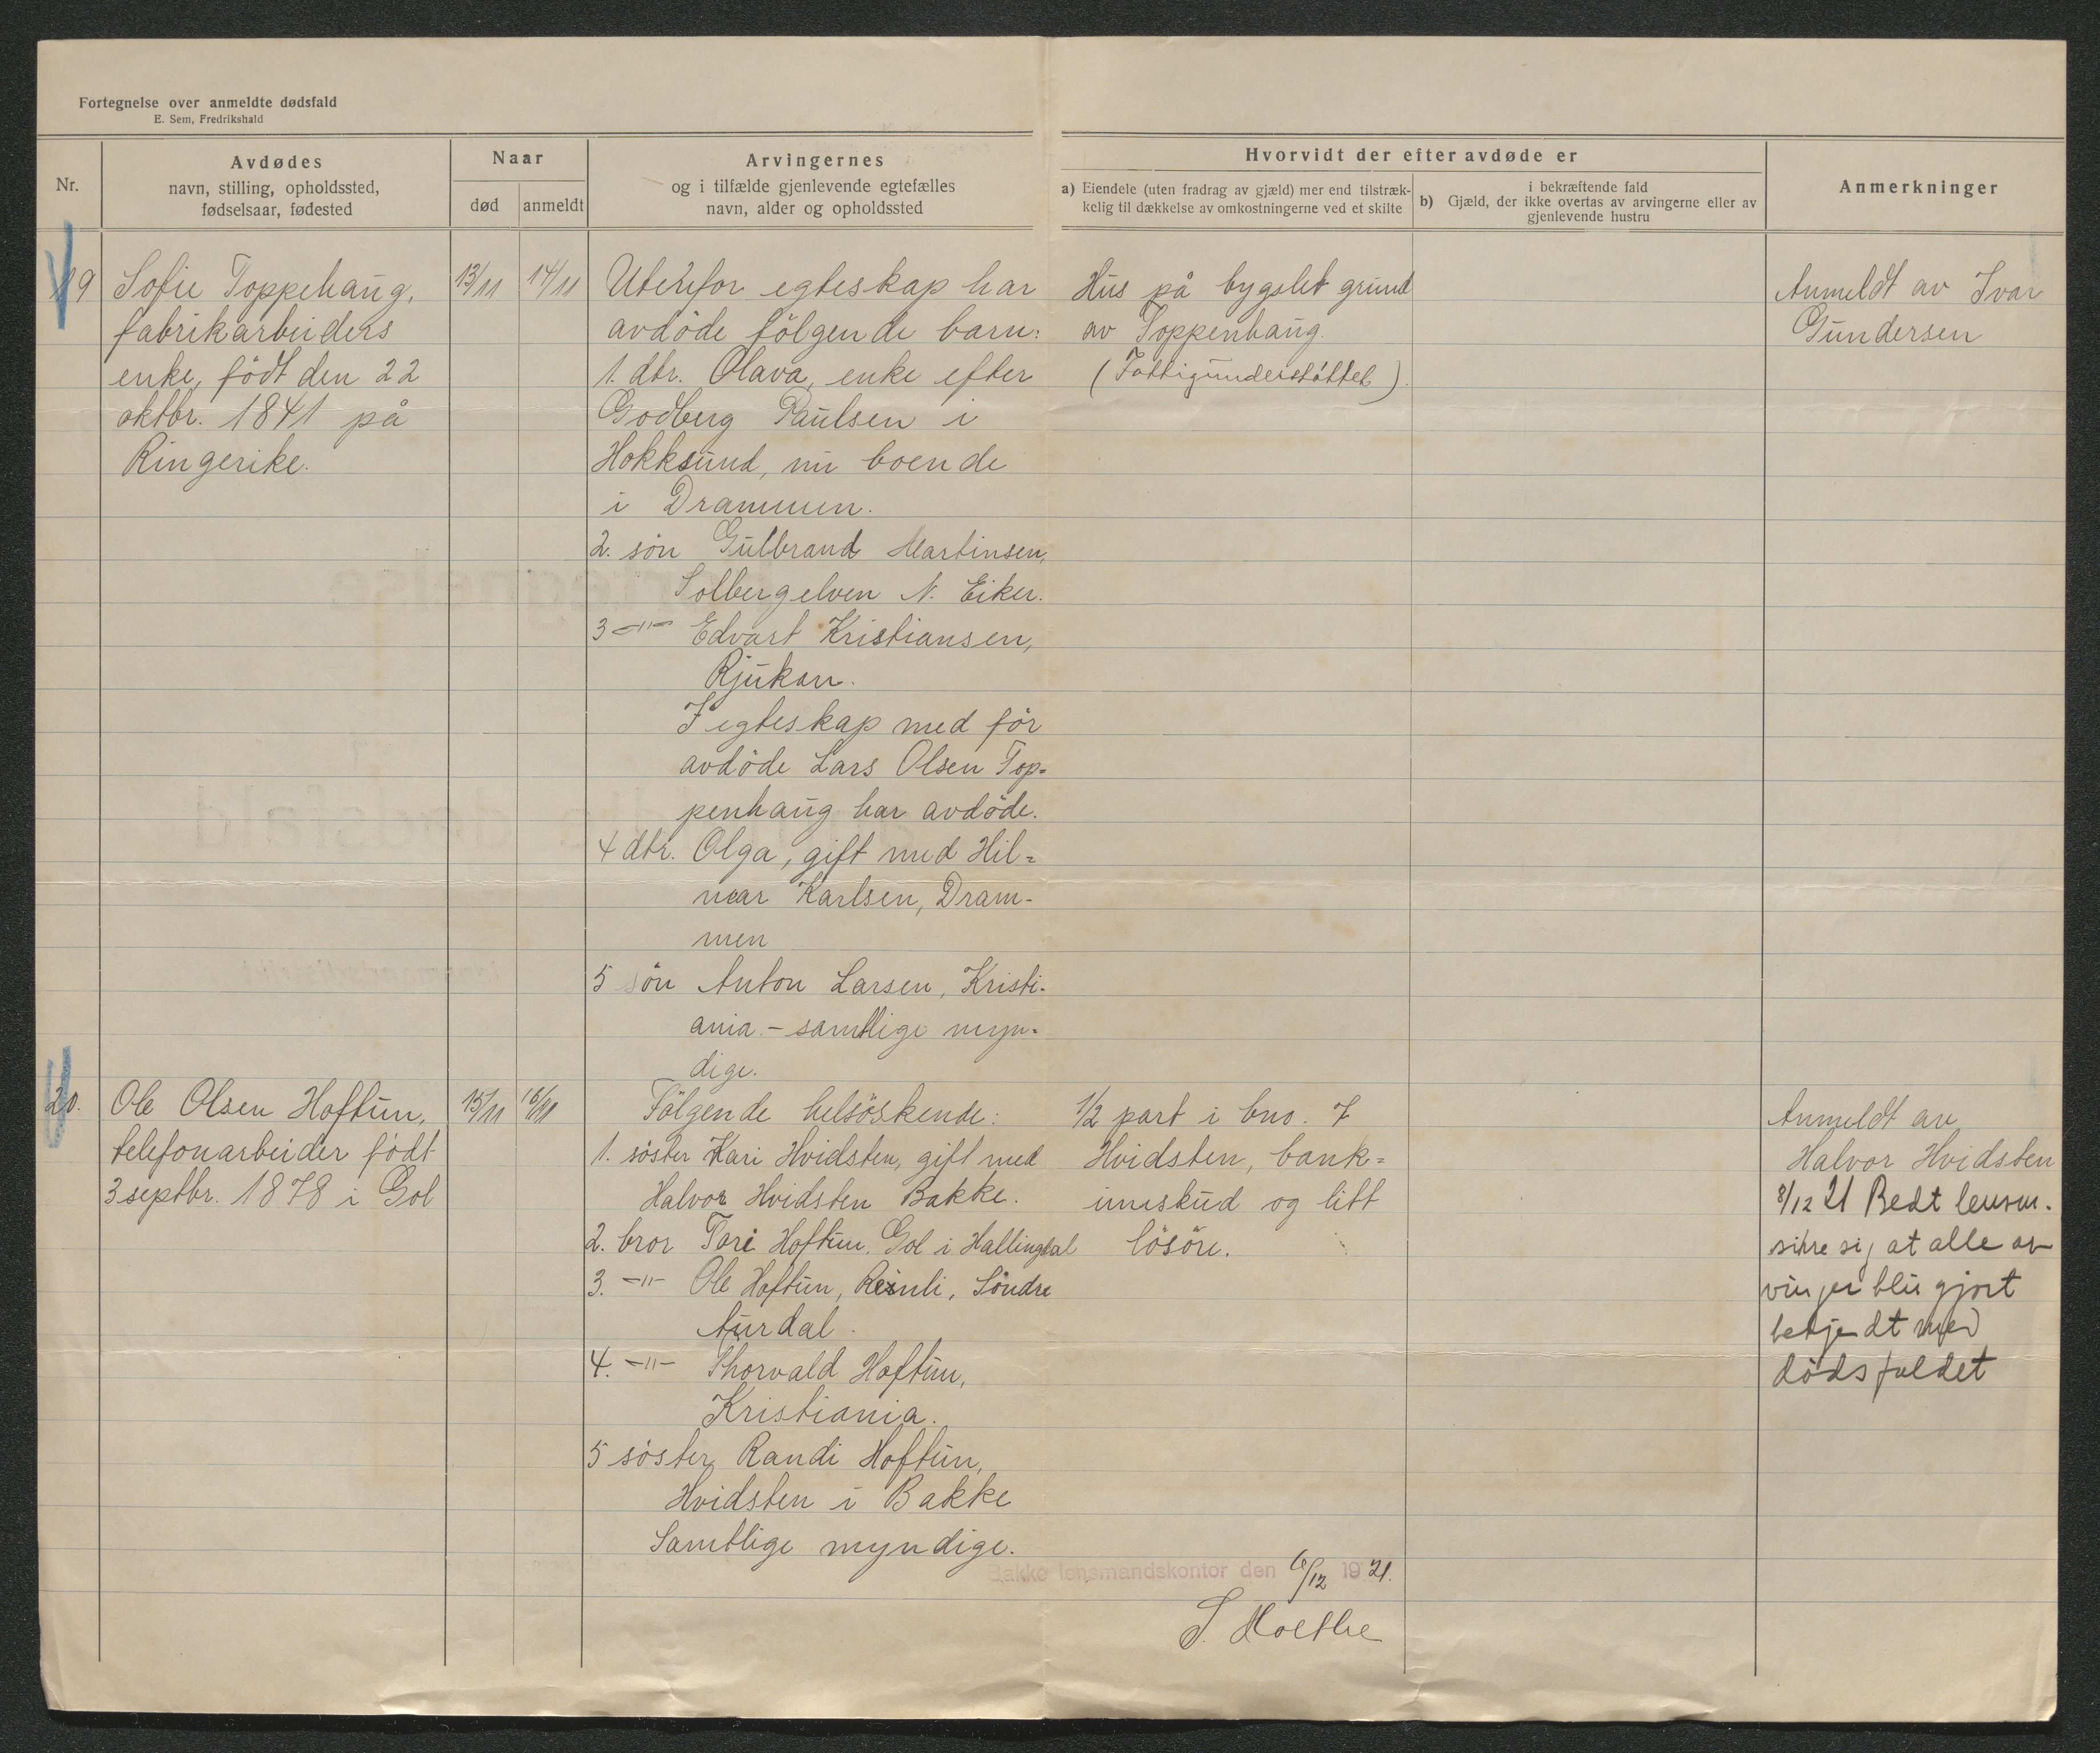 Fortegnelse over anmeldte dødsfald
E. Sem, Fredrikshald
Nr.
Avdødes
navn, stilling, opholdssted,
fødselsaar, fødested
Naar
død
anmeldt
Arvingernes
og i tilfælde gjenlevende egtefælles
navn, alder og opholdssted
Hvorvidt der efter avdøde er
a) Eiendele (uten fradrag av gjæld) mer end tilstræk-
kelig til dækkelse av omkostningerne ved et skifte
b) Gjæld, der i bekræftende fald
ikke overtas av arvingerne eller av
gjenlevende hustru
Anmerkninger
19
Sofie Toppehaug,
fabrikarbeiders
enke, födt den 22
oktbr. 1841 på
Ringerike.
13/11
14/11
Utenfor egteskap har
avdöde fölgende barn:
1. dtr. Olava, enke efter
Godberg Paulsen i
Hokksund, nu boende
i Drammen.
2. sön Gulbrand Martinsen,
Solbergelven N. Eiker.
3 -"- Edvart Kristiansen,
Rjukan.
I egteskap med för
avdöde Lars Olsen Top=
penhaug har avdöde.
4 dtr. Olga, gift med Hil=
mar Karlsen, Dram-
men
5 sön Anton Larsen, Kristi-
ania. - samtlige myn=
dige.
Hus på bygslet grund
av Toppenhaug.
(Fattigunderstöttet).
Anmeldt av Ivar
Gundersen
20.
Ole Olsen Hoftun,
telefonarbeider födt
3 septbr. 1878 i Gol
15/11
16/11
Fölgende helsöskende:
1. söster Kari Hvidsten, gift med
Halvor Hvidsten Bakke.
2. bror Tore Hoftun, Gol i Hallingdal
3. -"- Ole Hoftun, Reinli, Söndre
Aurdal.
4. -"- Thorvald Hoftun,
Kristiania.
5 söster Randi Hoftun,
Hvidsten i Bakke
Samtlige myndige.
1/2 part i bno. 7
Hvidsten, bank=
inskud og litt
lösöre.
Anmeldt av
Halvor Hvidsten
8/12 21 Bedt lensm.
sikre sig at alle ar-
vinger blir gjort
bekjendt med
dödsfaldet
Bakke lensmandskontor den 6/12 1921.